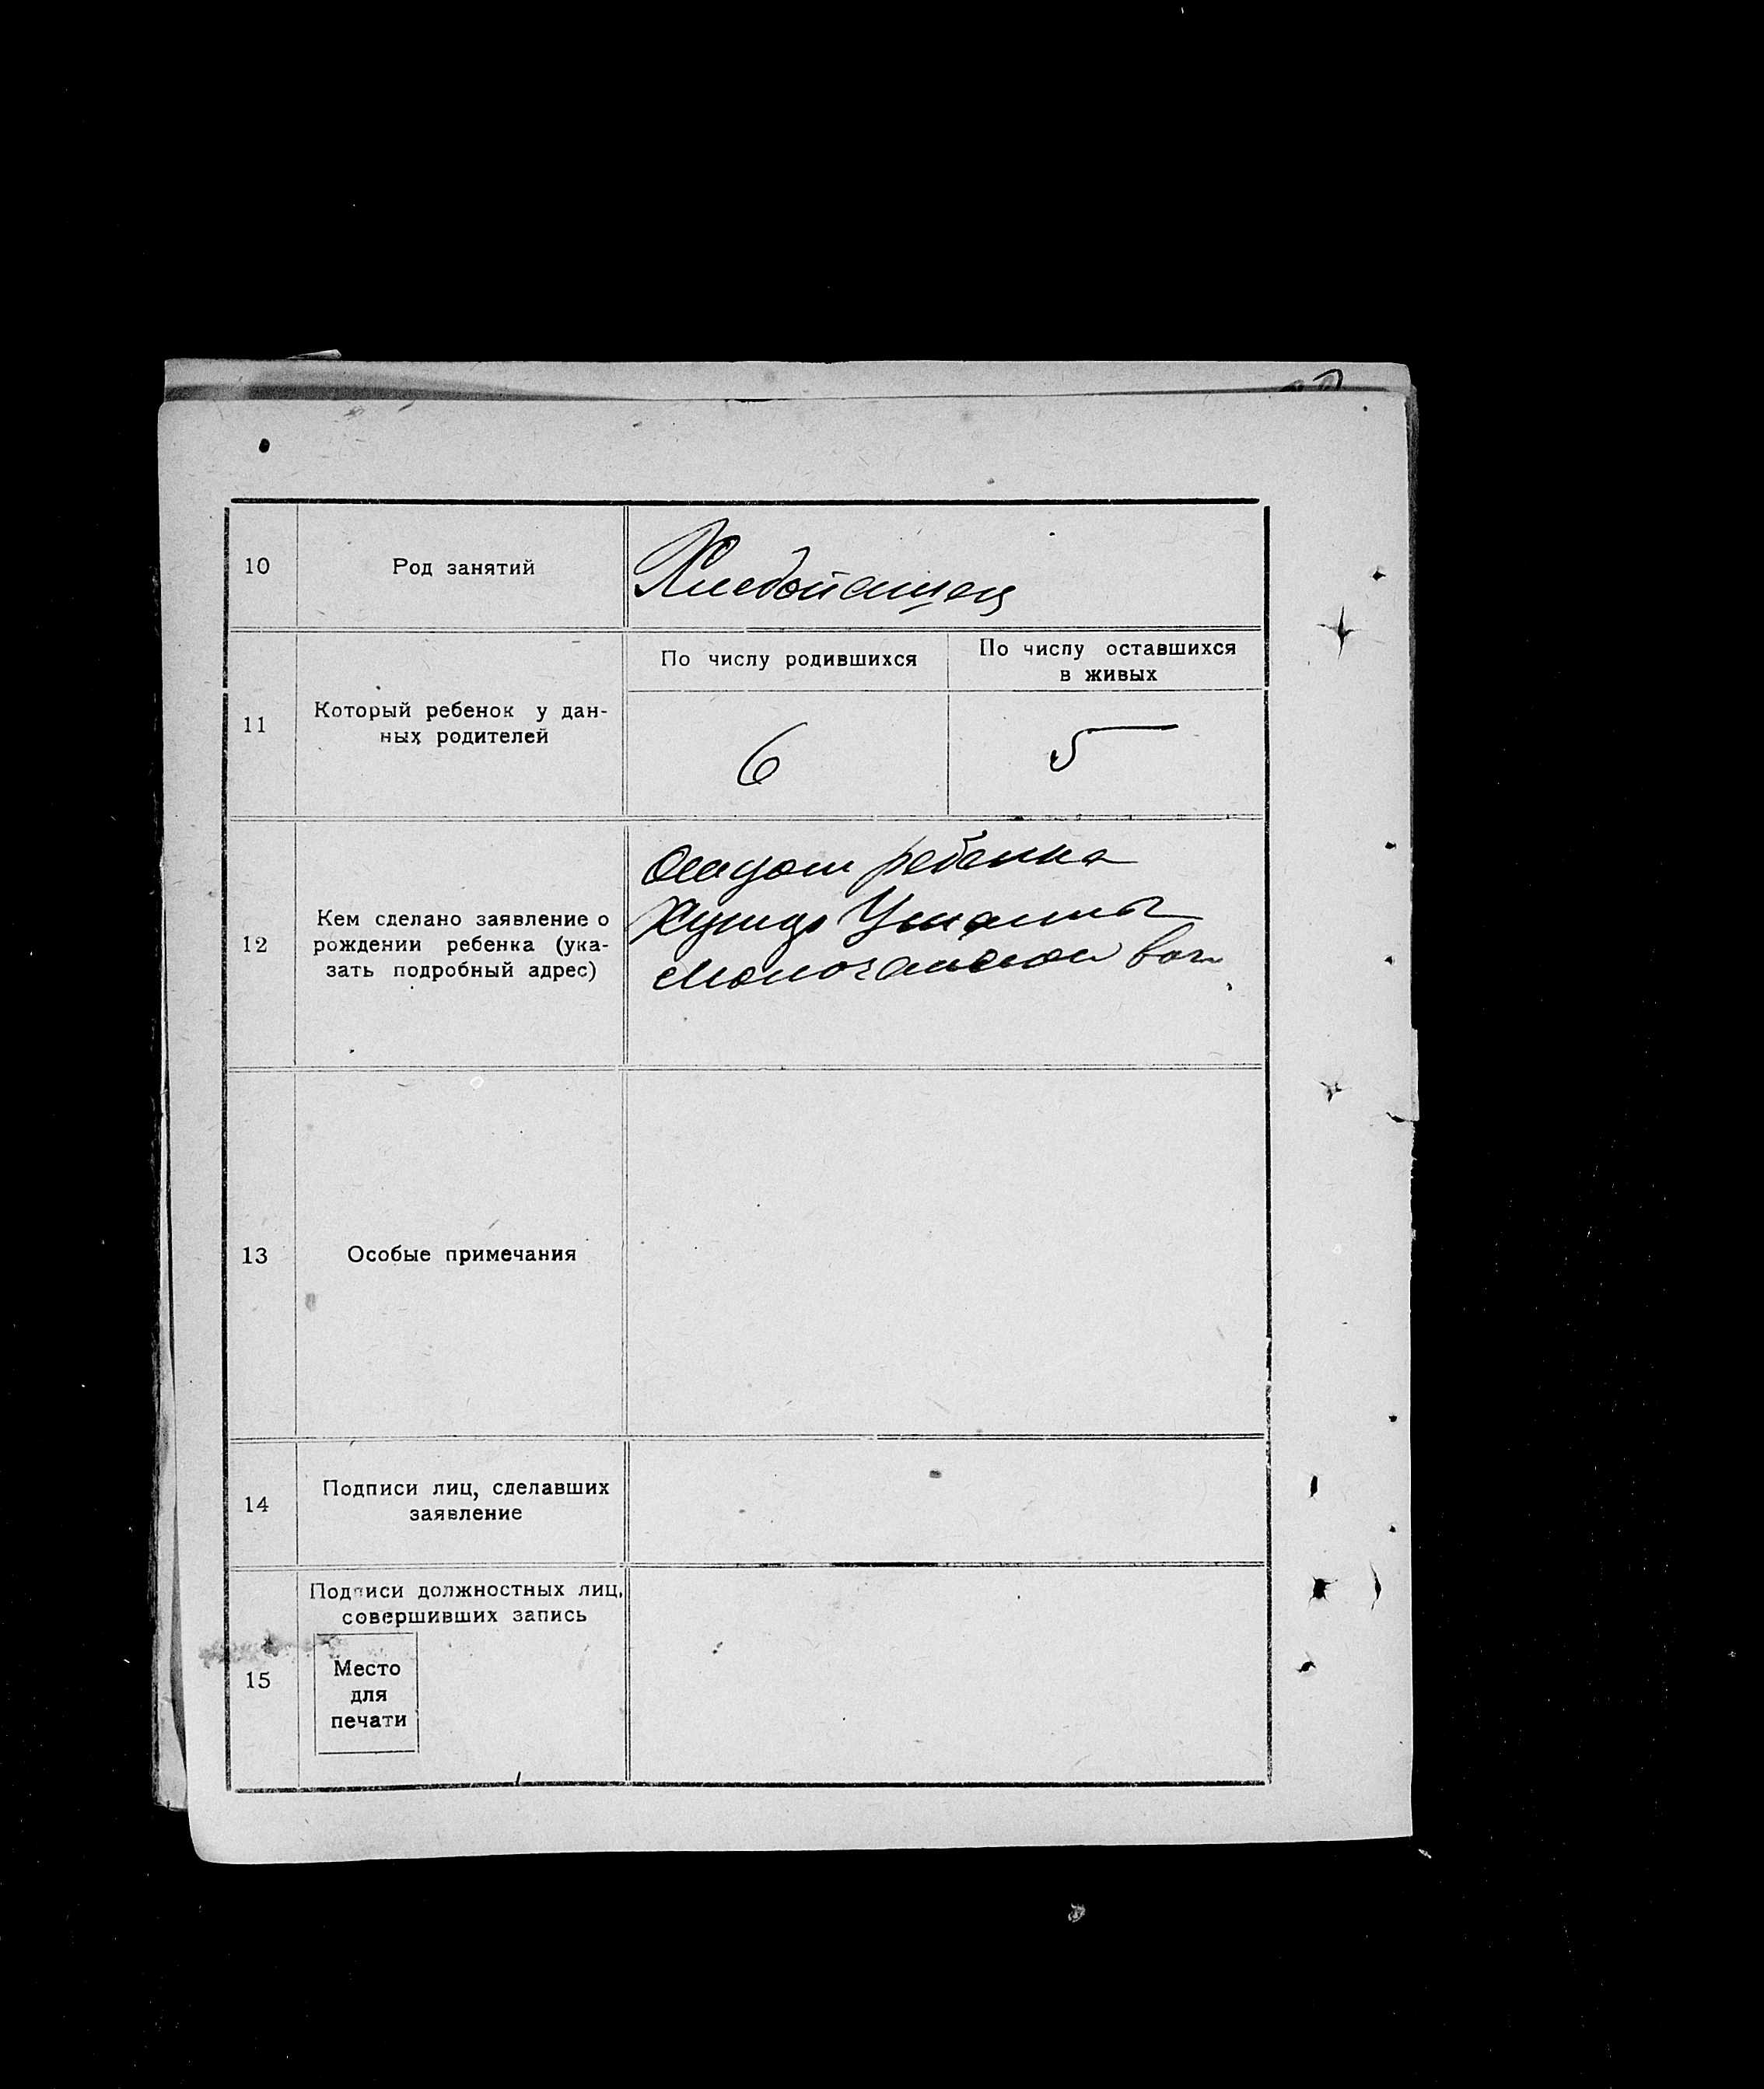 10
Род занятий
Хлебопашец
11
Который ребенок у дан-
ных родителей
По числу родившихся
По числу оставшихся
в живых
6
5
12
Кем сделано заявление о
рождении ребенка (ука-
зать подробный адрес)
ребенка
вол
13
Особые примечания
14
Подписи лиц, сделавших
заявление
15
Подписи должностных лиц,
совершивших запись
Место
для
печати